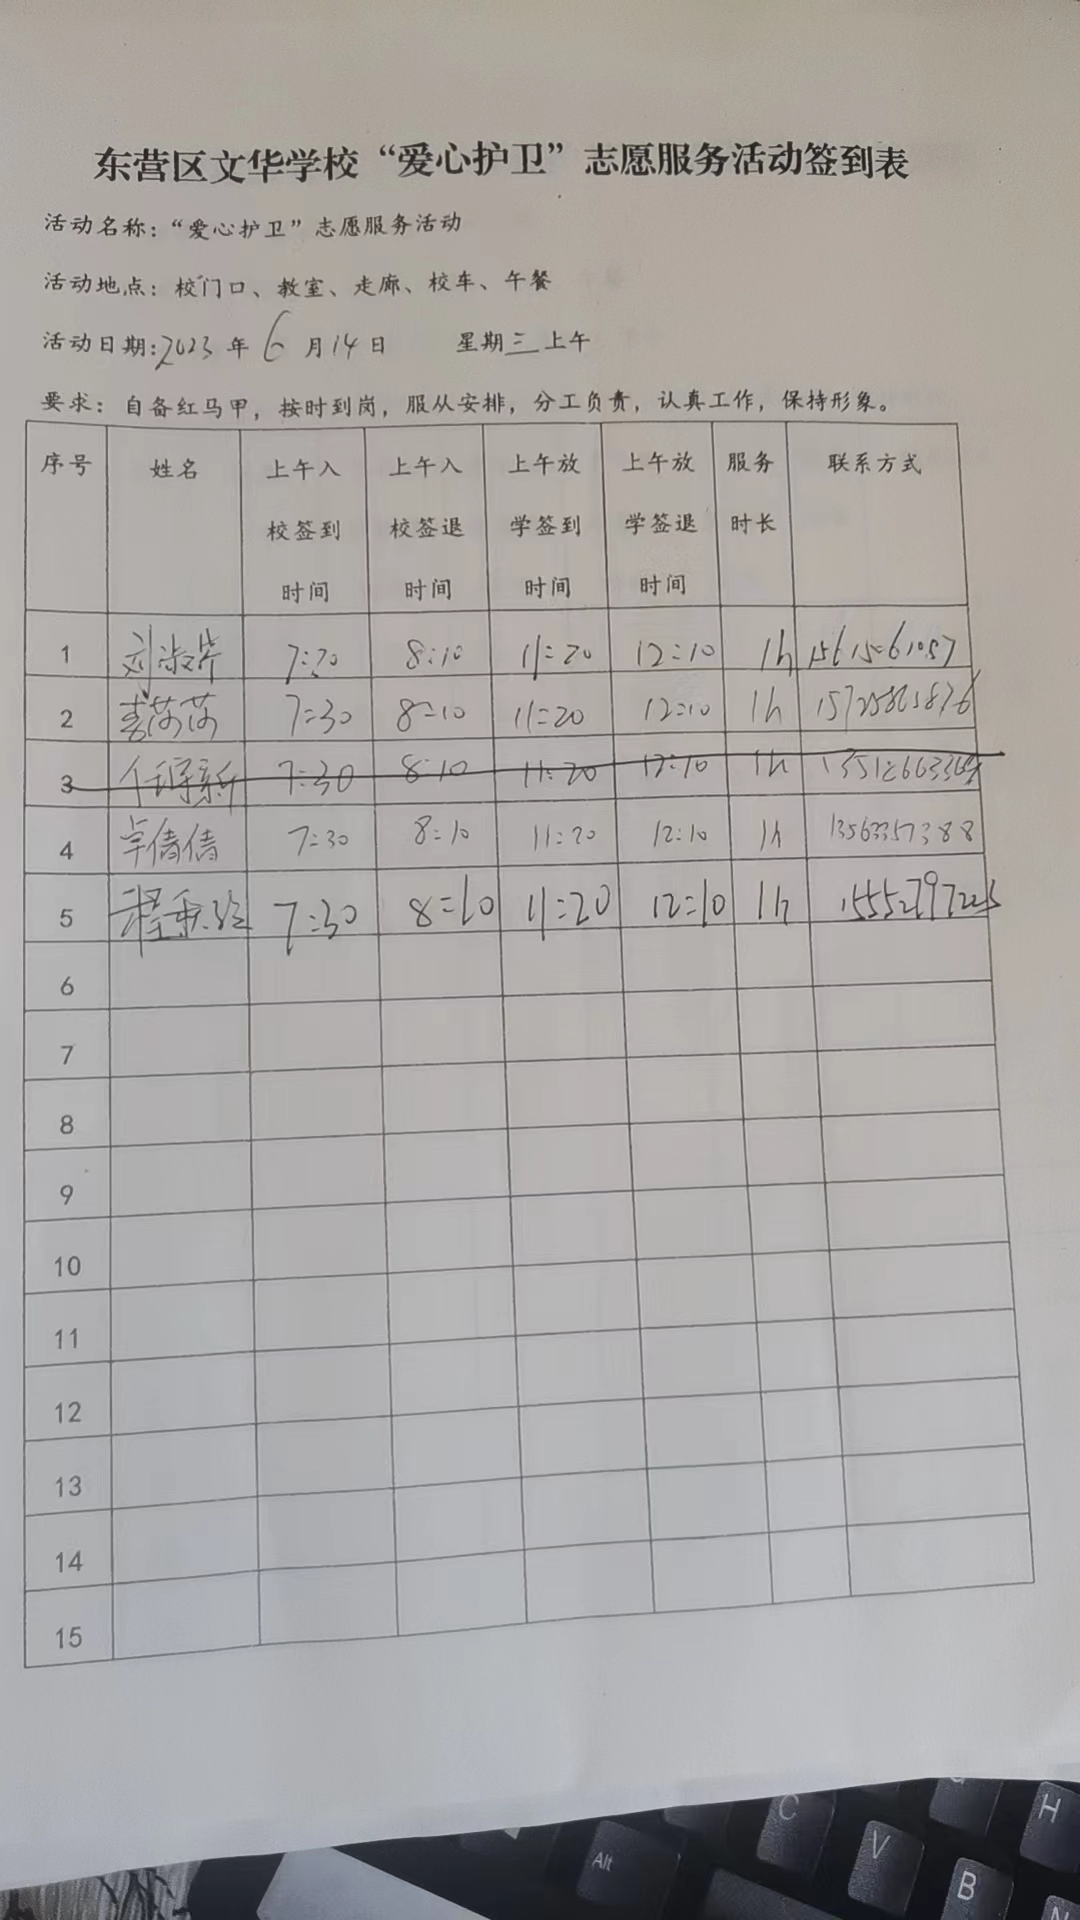 东营区文华学校“爱心护卫”志愿服务活动签到表
活动名称：“爱心护卫”志愿服务活动
活动地点：校门口、教室、走廊、校车、午餐
活动日期:2023年6月14日 星期三上午
要求：自备红马甲，按时到岗，服从安排，分工负责，认真工作，保持形象。
序号 姓名 上午入校签到时间 上午入校签退时间 上午放学签到时间 上午放学签退时间 服务时长 联系方式
1 7:20 8:10 11:20 12:10 1h
2 7:30 8:10 11:20 12:10 1h
3 7:30 8:10 11:20 12:10 1h
4 卓倩倩 7:30 8:10 11:20 12:10 1h 13563357388
5 7:30 8:10 11:20 12:10 1h
6
7
8
9
10
11
12
13
14
15
Alt
C
V
B
H